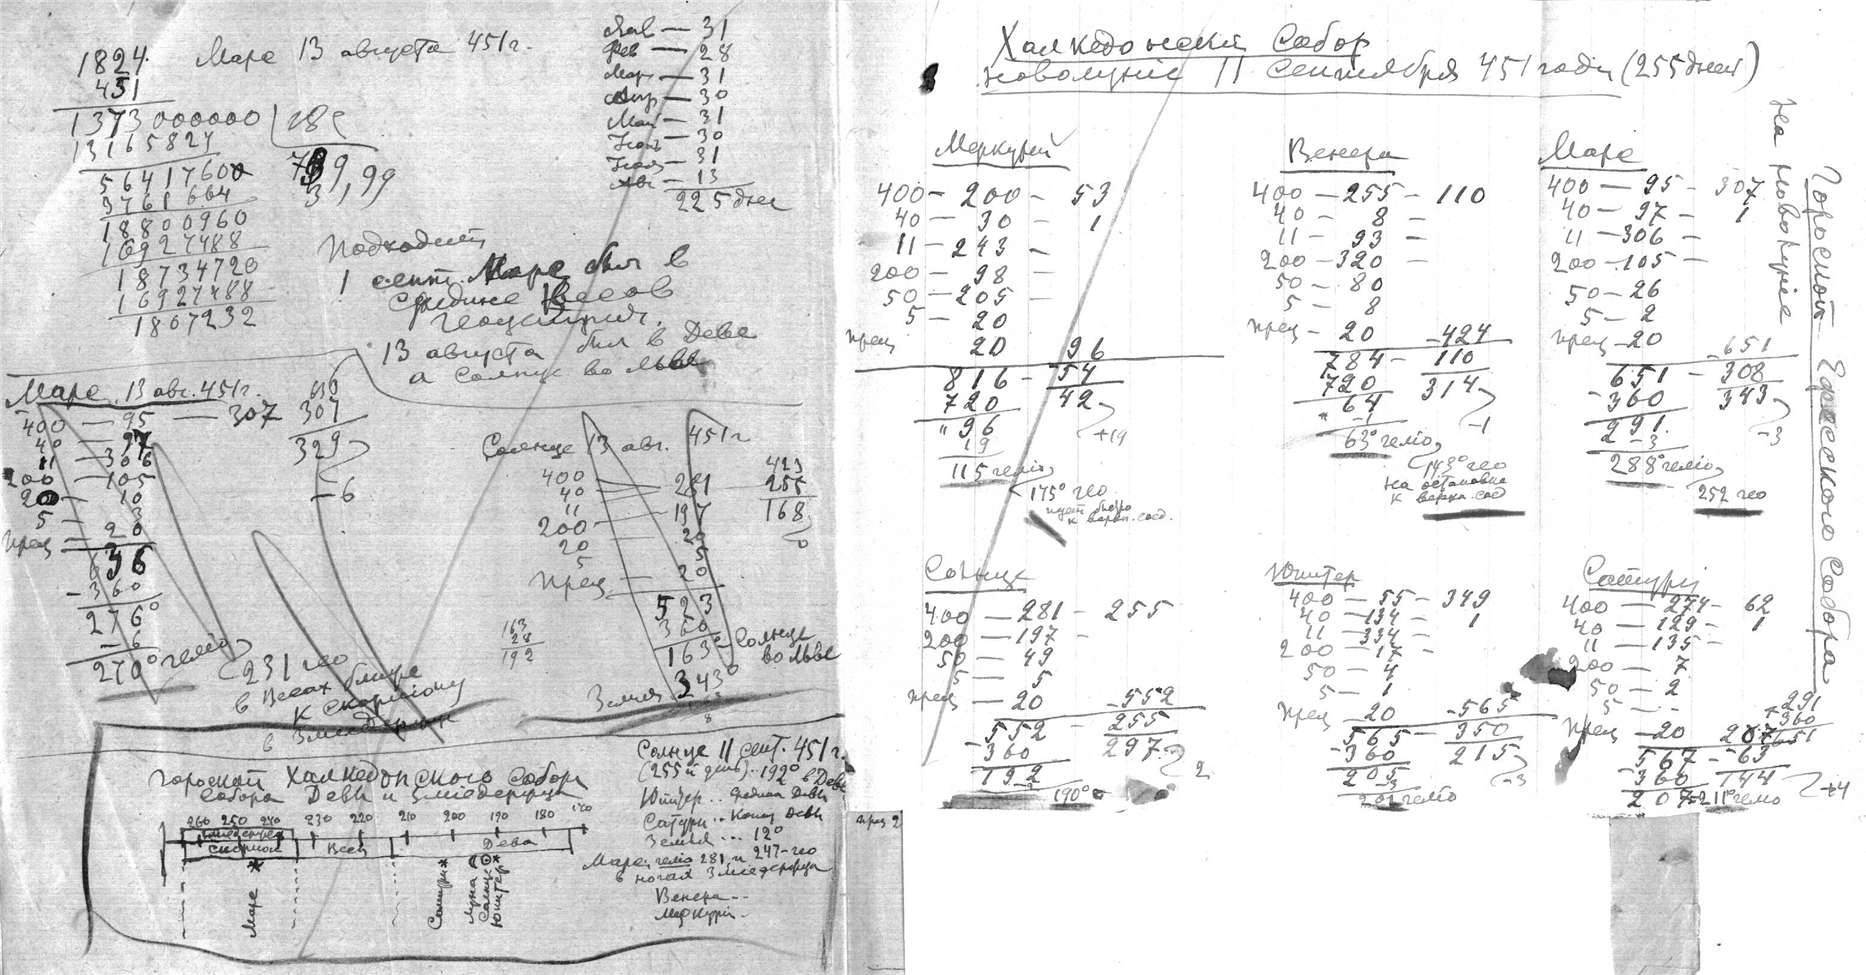 1824
451
1373 000000
13165824
56417600
3761664
18800960
16927488
18734720
16927488
1807232
Марс 13 августа 451 г.
Янв — 31
Фев — 28
Март — 31
Апр — 30
Май — 31
Июнь — 30
Июль — 31
Авг — 13
225 дней
Подходит
1 сент. Марс был в
средине Весов
геоцентрич.
13 августа был в Деве
а Солнце во Льве
Марс 13 авг. 451 г.
400 — 95 — 307
40 — 97
11 — 306
200 — 105
20 — 10
5 — 3
прец — 20
636
-360
276°
- 6
270° гелио
636
307
329
- 6
231 гео
в Весах ближе
к Скорпиону
в Змиедержце
Солнце 13 авг. 451 г
400 — 281
40
11
200 — 197
20 — 20
5 — 5
Прец — 20
523
360
163° Солнце
во Льве
Земля 343°
423
255
168
163
28
192
гороскоп Халкедонского собора
собора Девы и Змиедержца
260 250 240 230 220 210 200 190 180 170
Змиедержец
Скорпион Весы Дева
Марс
Сатурн
Луна
Солнце
Юпитер
Солнце 11 сент. 451 г.
(255й день).. 192° в Деве
Юпитер .. средина Девы
Сатурн .. конец Девы
Земля ... 12°
Марс гелио 281 и 247-гео
в ногах Змиедержца
Венера --
Меркурий -
прец 2
Халкедонский Собор
новолуние 11 сентября 451 года (255 дней)
Меркурий
400 — 200 — 53
40 — 30 — 1
11 — 243 —
200 — 98 —
50 — 205 —
5 — 20
прец 20 96
816 — 54
720 42
" 96 +19
19
115 гелио
175° гео
идет быстро
к верхн. соед.
Венера
400 — 255 — 110
40 — 8 —
11 — 93 —
200 — 320 —
50 — 80
5 — 8
прец — 20 — 424
784 — 110
720 314
" 64 -1
-1
63° гелио
143° гео
на остановке
к верхн. соед
Марс
400 — 95 — 307
40 — 97 — 1
11 — 306 —
200 — 105 —
50 — 26
5 — 2
прец — 20 - 651
651 — 308
-360 343
291 -3
-3
288° гелио
252 гео
Солнце
400 — 281 — 255
200 — 197 —
50 — 49
5 — 5
прец — 20 — 552
552 — 255
-360 297
192 2
-2
190°
Юпитер
400 — 55 — 349
40 — 134 — 1
11 — 334 —
200 — 17 —
50 — 4
5 — 1
прец 20 — 565
565 — 350
-360 215
205 -3
-3
201 гелио
Сатурн
400 — 274 — 62
40 — 129 — 1
11 — 135 —
200 — 7
50 — 2
5 — -
прец — 20
291
+360
651
567 — 63
-360 144
207 +4
=211 гелио
Гороскоп Ефесского Собора
на новолуние